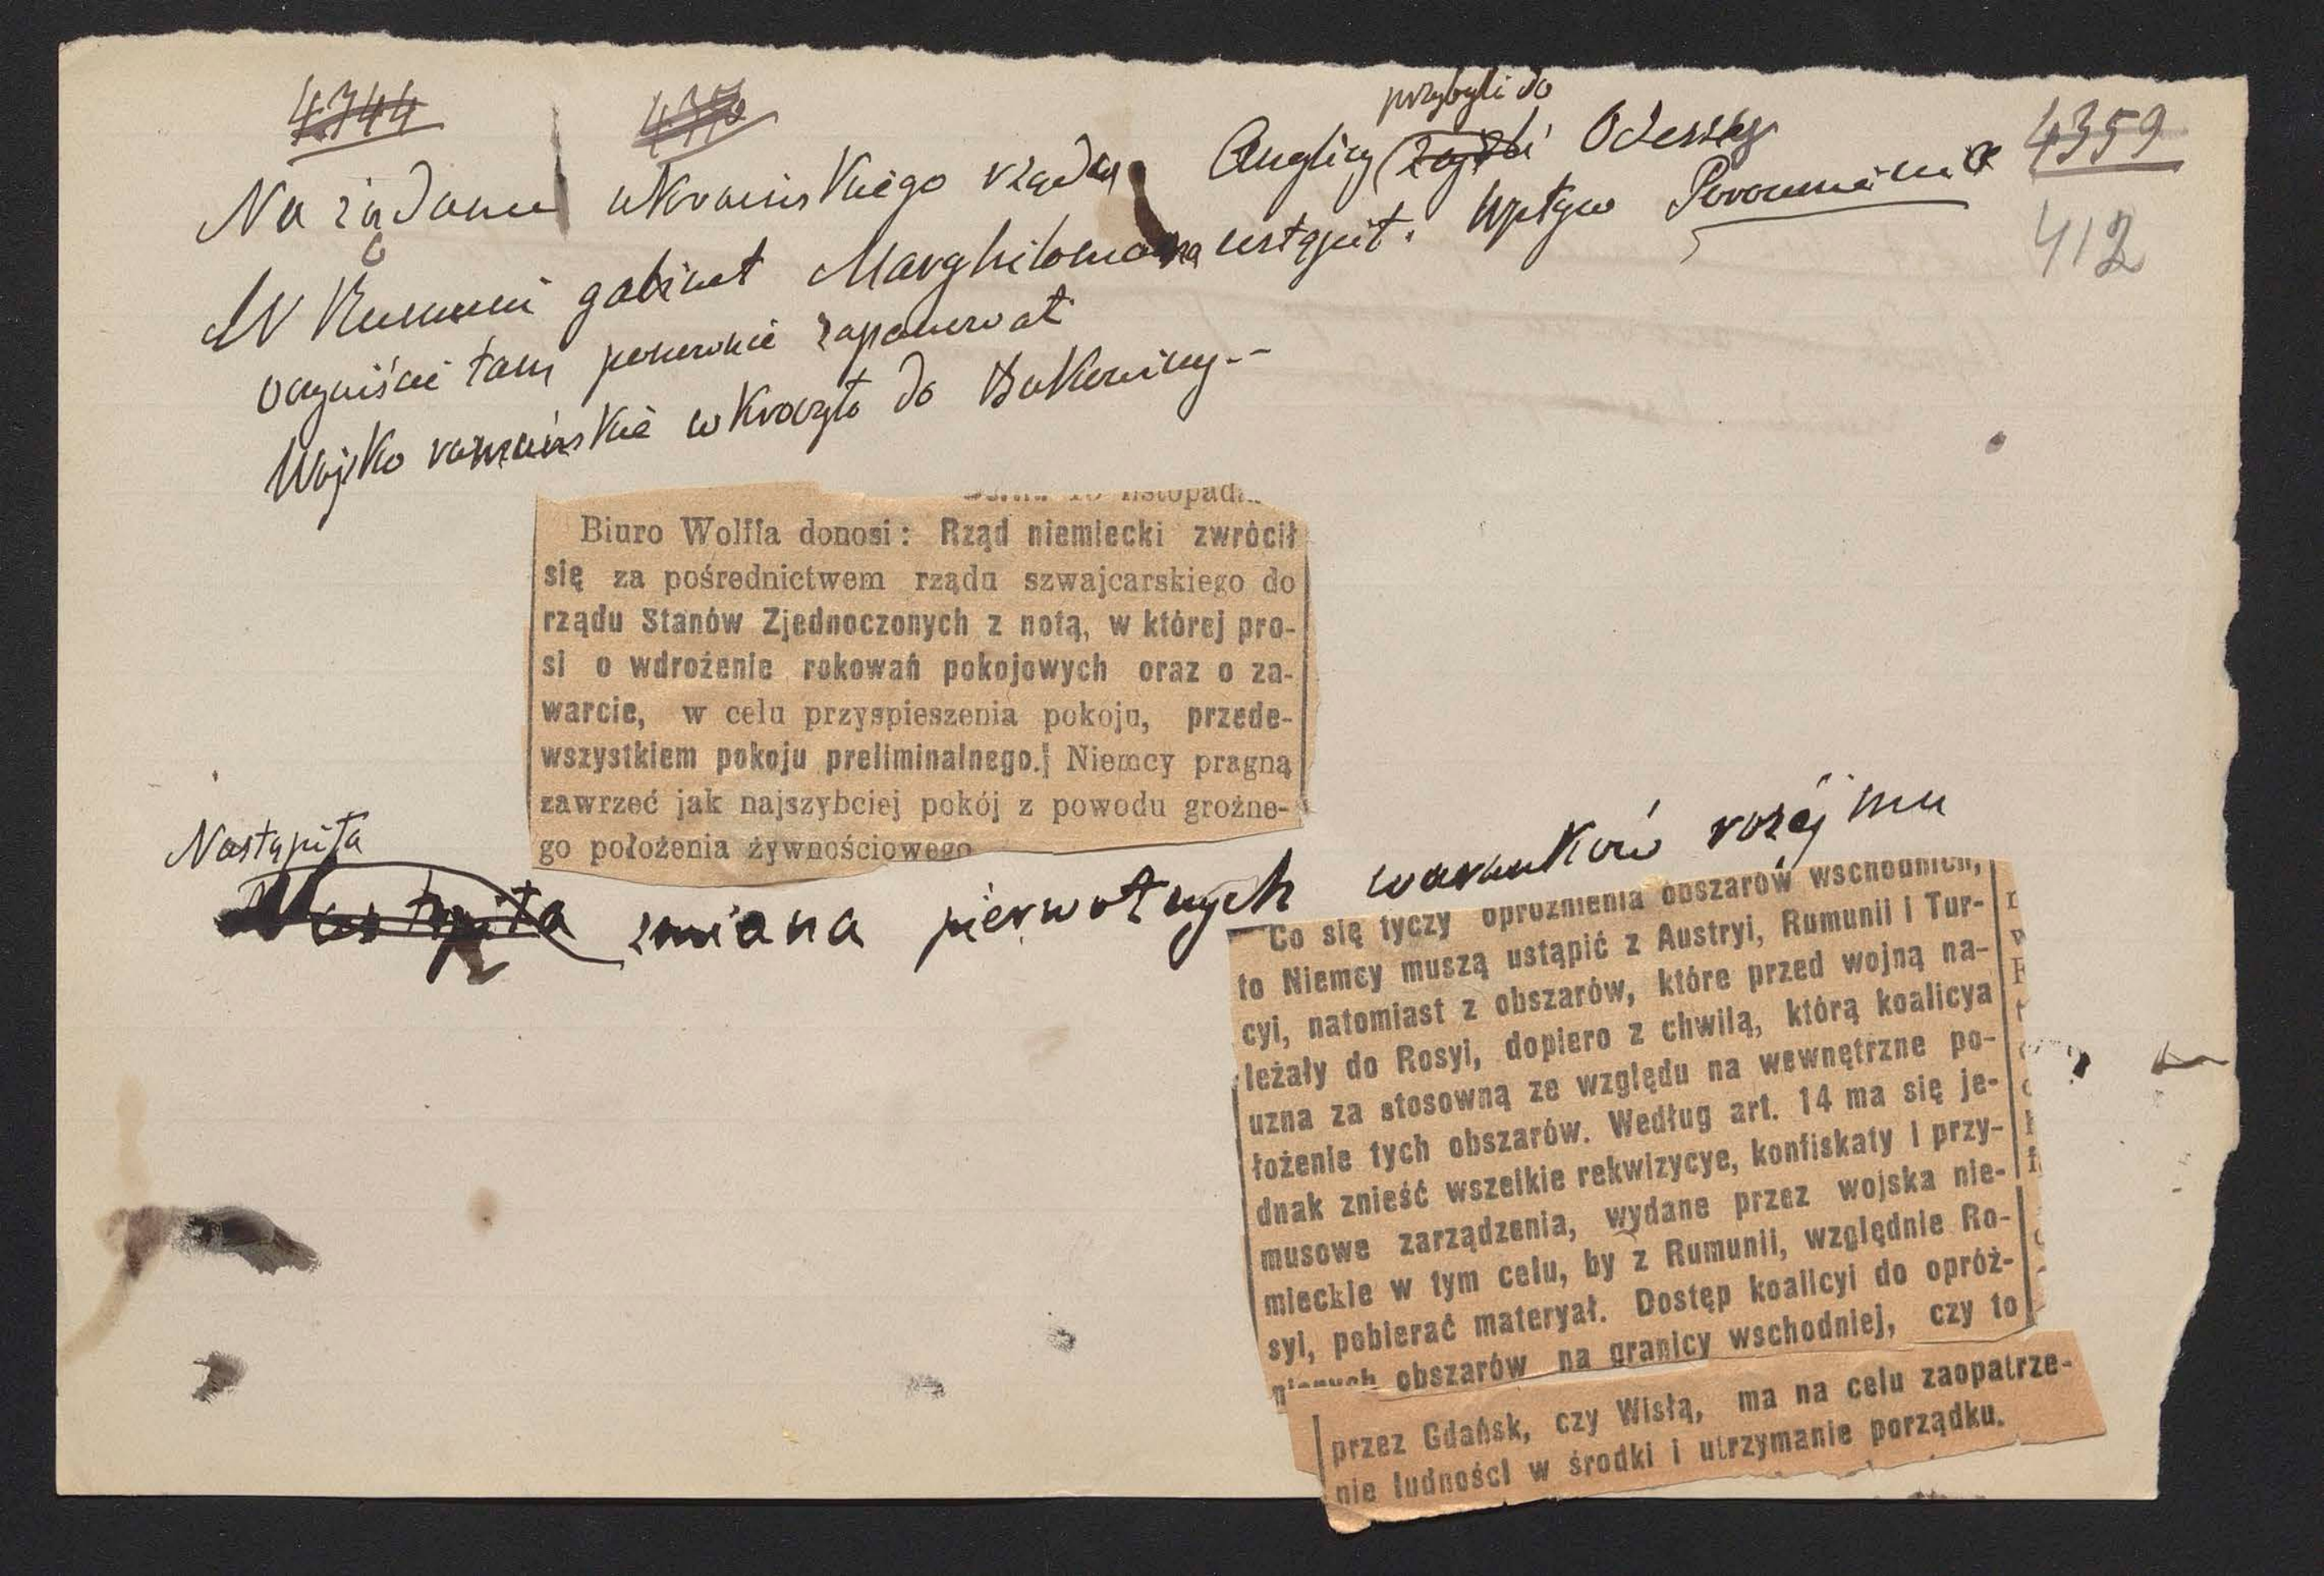 4344
4359
412
przybyli do
Na żądanie ukraińskiego rządu Anglicy zajęli Odessę
W Rumunii gabinet Marghilomana ustąpił. Wpływ Porozumienia
oczywiście tam ponownie zapanował
Wojsko rumuńskie wkroczyło do Bukowiny.--
listopad
Biuro Wolffa donosi: Rząd niemiecki zwrócił
się za pośrednictwem rządu szwajcarskiego do
rządu Stanów Zjednoczonych z notą, w której pro-
si o wdrożenie rokowań pokojowych oraz o za-
warcie, w celu przyspieszenia pokoju, przede-
wszystkiem pokoju preliminalnego. Niemcy pragną
zawrzeć jak najszybciej pokój z powodu groźne-
go położenia żywnościowego
Nastąpiła
Nastąpiła zmiana pierwotnych warunków rozejmu
Co się tyczy opróżnienia obszarów wschodnich,
to Niemcy muszą ustąpić z Austryi, Rumunii i Tur-
cyi, natomiast z obszarów, które przed wojną na-
leżały do Rosyi, dopiero z chwilą, którą koalicya
uzna za stosowną ze względu na wewnętrzne po-
łożenie tych obszarów. Według art. 14 ma się je-
dnak znieść wszelkie rekwizycye, konfiskaty i przy-
musowe zarządzenia, wydane przez wojska nie-
mieckie w tym celu, by z Rumunii, względnie Ro-
syi, pobierać materyał. Dostęp koalicyi do opróż-
nionych obszarów na granicy wschodniej, czy to
przez Gdańsk, czy Wisłą, ma na celu zaopatrze-
nie ludności w środki i utrzymanie porządku.